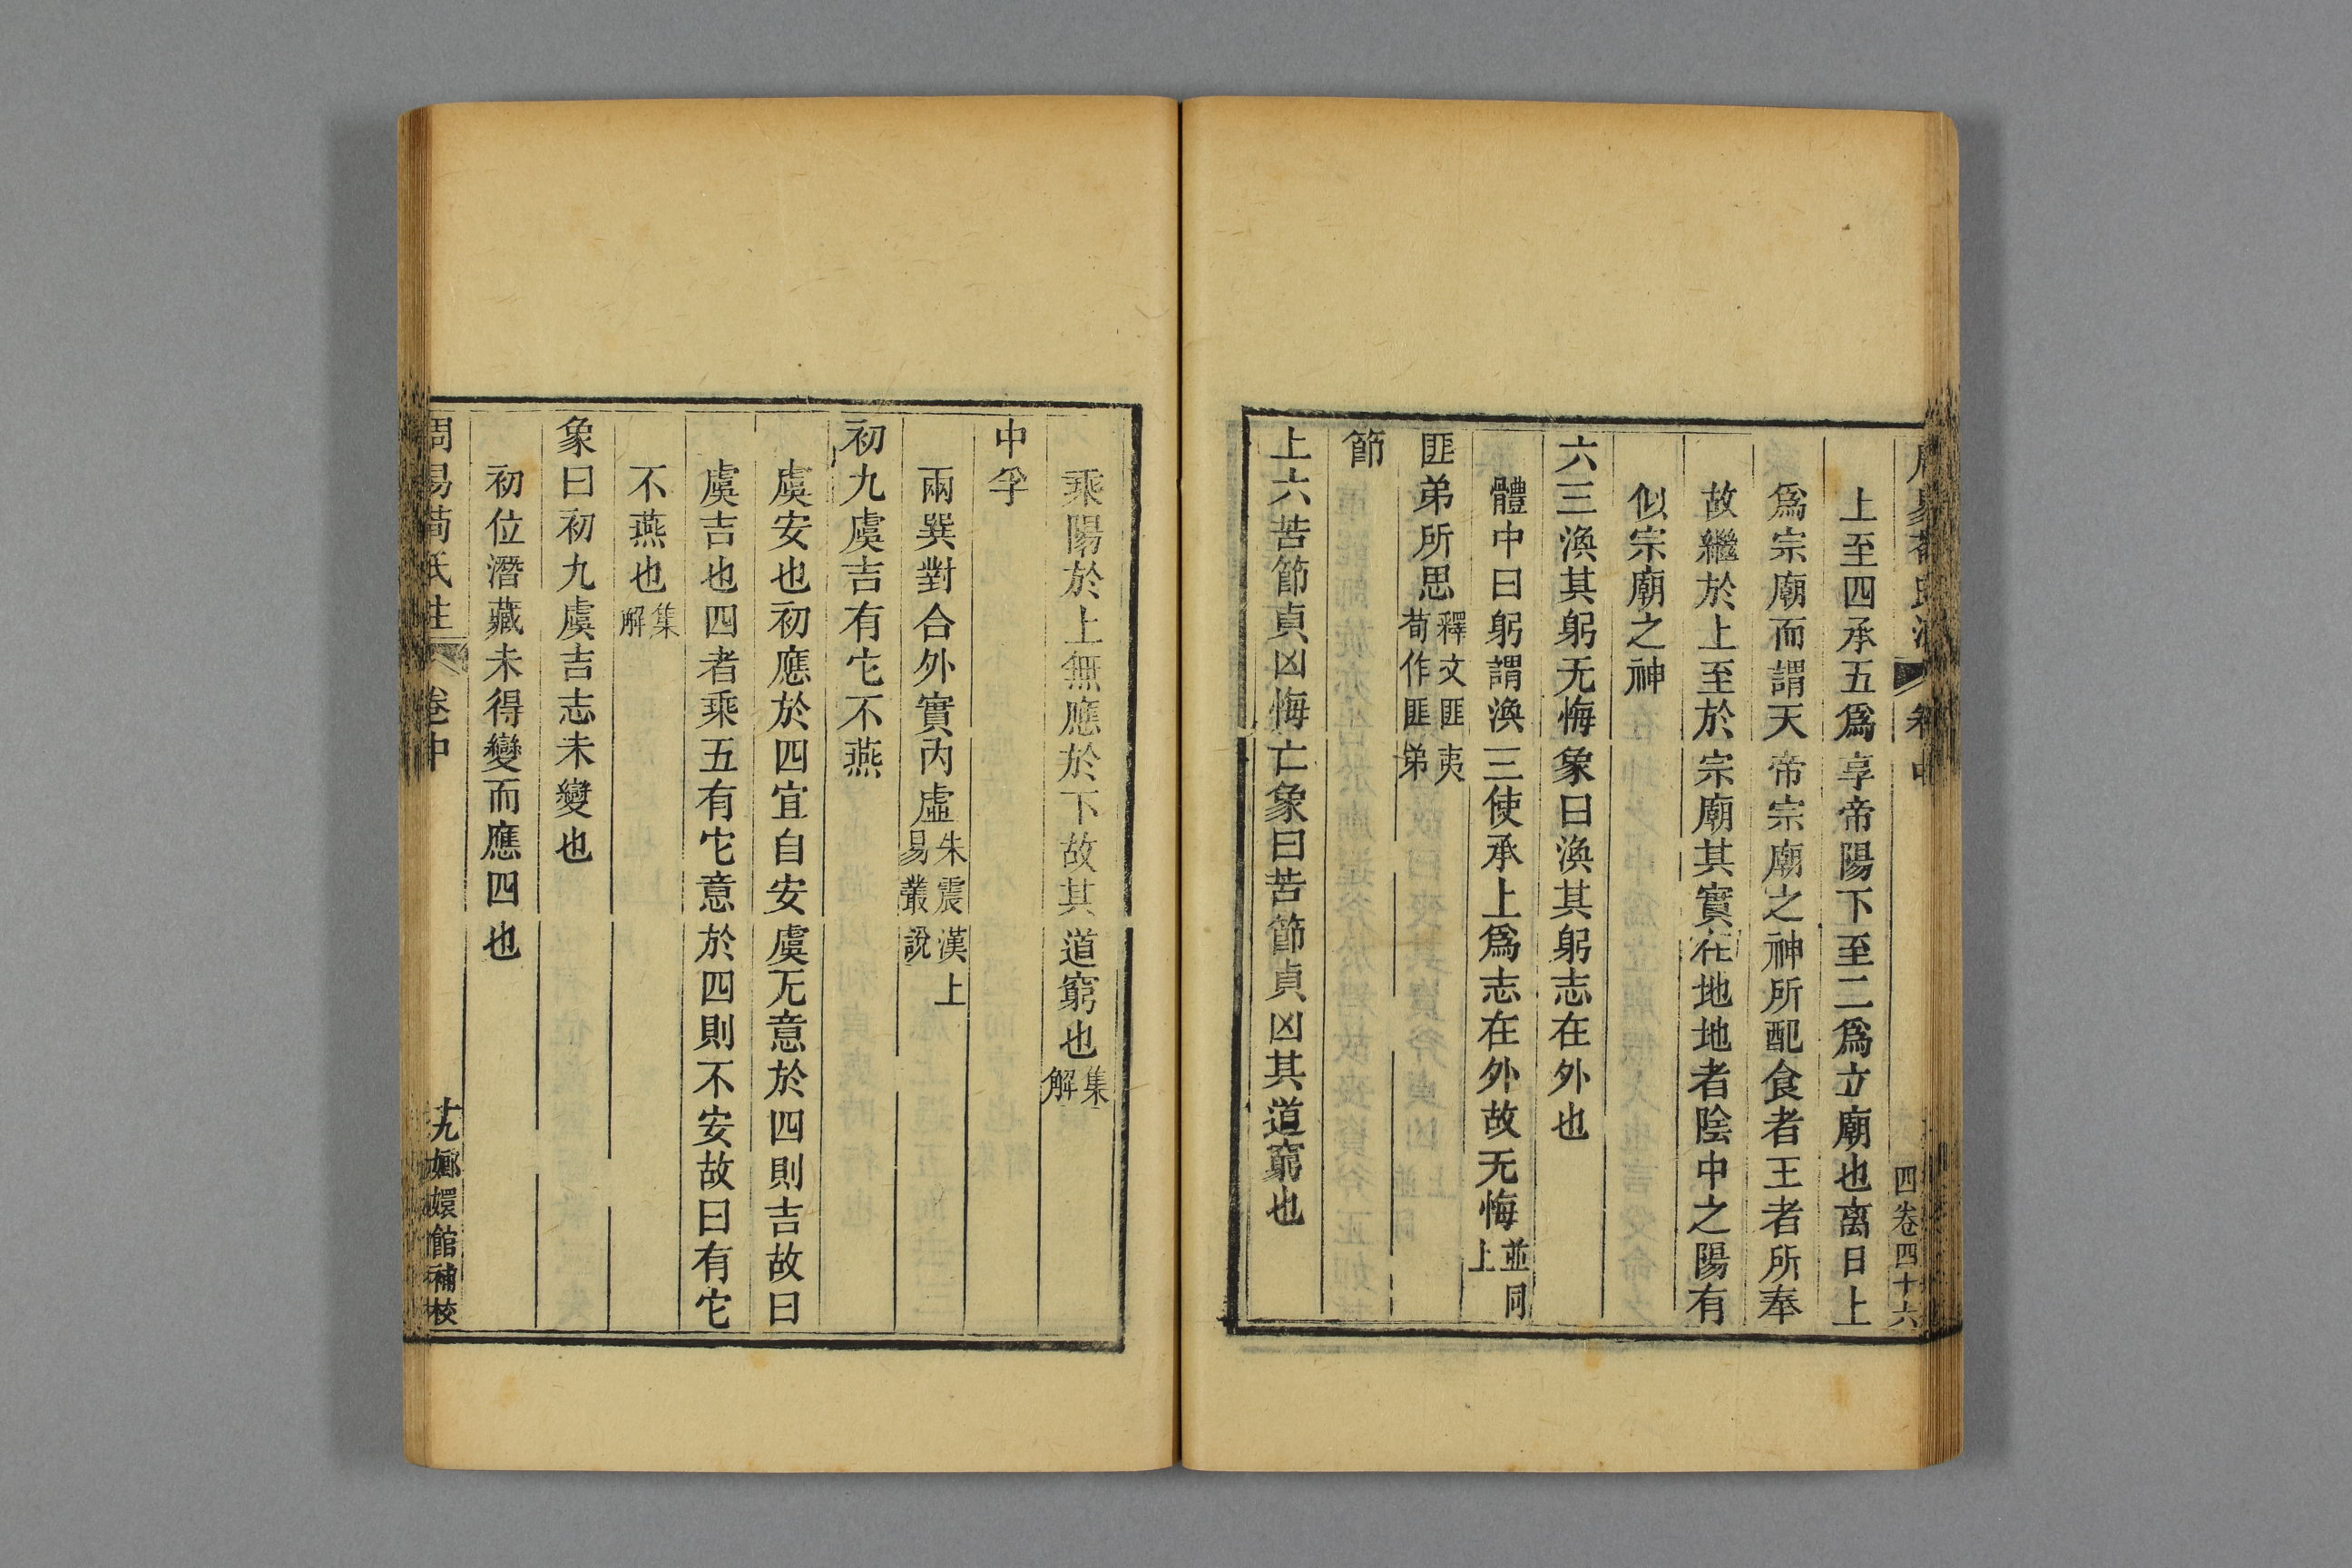 周易荀氏注 卷中 四卷四十六
上至四承五爲享帝陽下至二爲立廟也离日上
爲宗廟而謂天帝宗廟之神所配食者王者所奉
故繼於上至於宗廟其實在地地者陰中之陽有
似宗廟之神
六三渙其躬无悔象曰渙其躬志在外也
體中曰躬謂渙三使承上爲志在外故无悔並同上
匪弟所思釋文匪夷荀作匪弟
節
上六苦節貞凶悔亡象曰苦節貞凶其道窮也
乘陽於上無應於下故其道窮也集解
中孚
兩巽對合外實內虛朱震漢上易叢說
初九虞吉有它不燕
虞安也初應於四宜自安虞无意於四則吉故曰
虞吉也四者乘五有它意於四則不安故曰有它
不燕也集解
象曰初九虞吉志未變也
初位潛藏未得變而應四也
周易荀氏注 卷中 十九 嫏嬛館補校